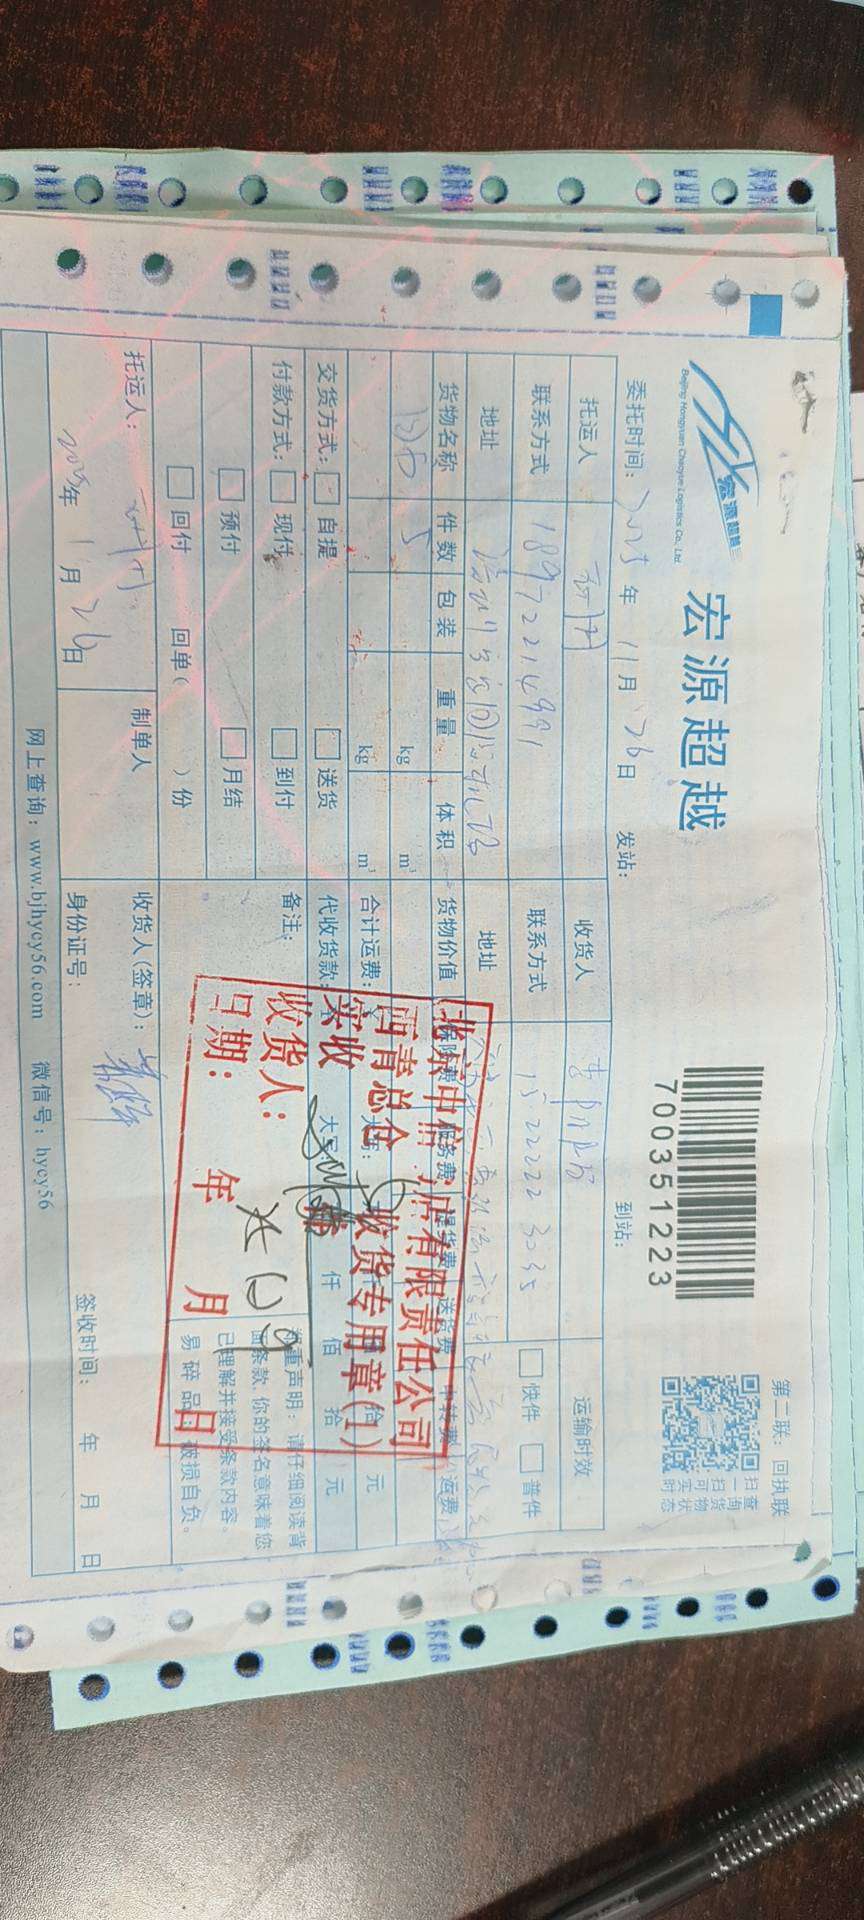 宏源超越
Beijing Hongyuan Chaoyue Logistics Co., Ltd.
宏源超越
7000351223
第二联：回执联
扫一扫
查询货物实时状态
委托时间： 年 11 月 26 日 发站： 到站：
托运人 收货人 运输时效
联系方式 18972214991 联系方式 15222223035 快件 普件
地址 地址
货物名称 件数 包装 重量 体积 货物价值 保险费 服务费 提货费 送货费 中转费 运费
5 kg m³
kg m³ 合计运费： 大写： 仟 佰 拾 元
交货方式： 自提 送货 代收货款： 大写： 仟 佰 拾 元
付款方式： 现付 到付 备注：
预付 月结
回付 回单（ ）份
郑重声明：请仔细阅读背面条款，你的签名意味着您已理解并接受条款内容。
易碎品，破损自负。
托运人： 制单人 收货人(签章)：
年 1 月 26 日 身份证号： 签收时间： 年 月 日
网上查询：www.bjhycy56.com 微信号：hycy56
西青总仓 收货专用章(1)
实收
收货人：
日期： 年 月 日